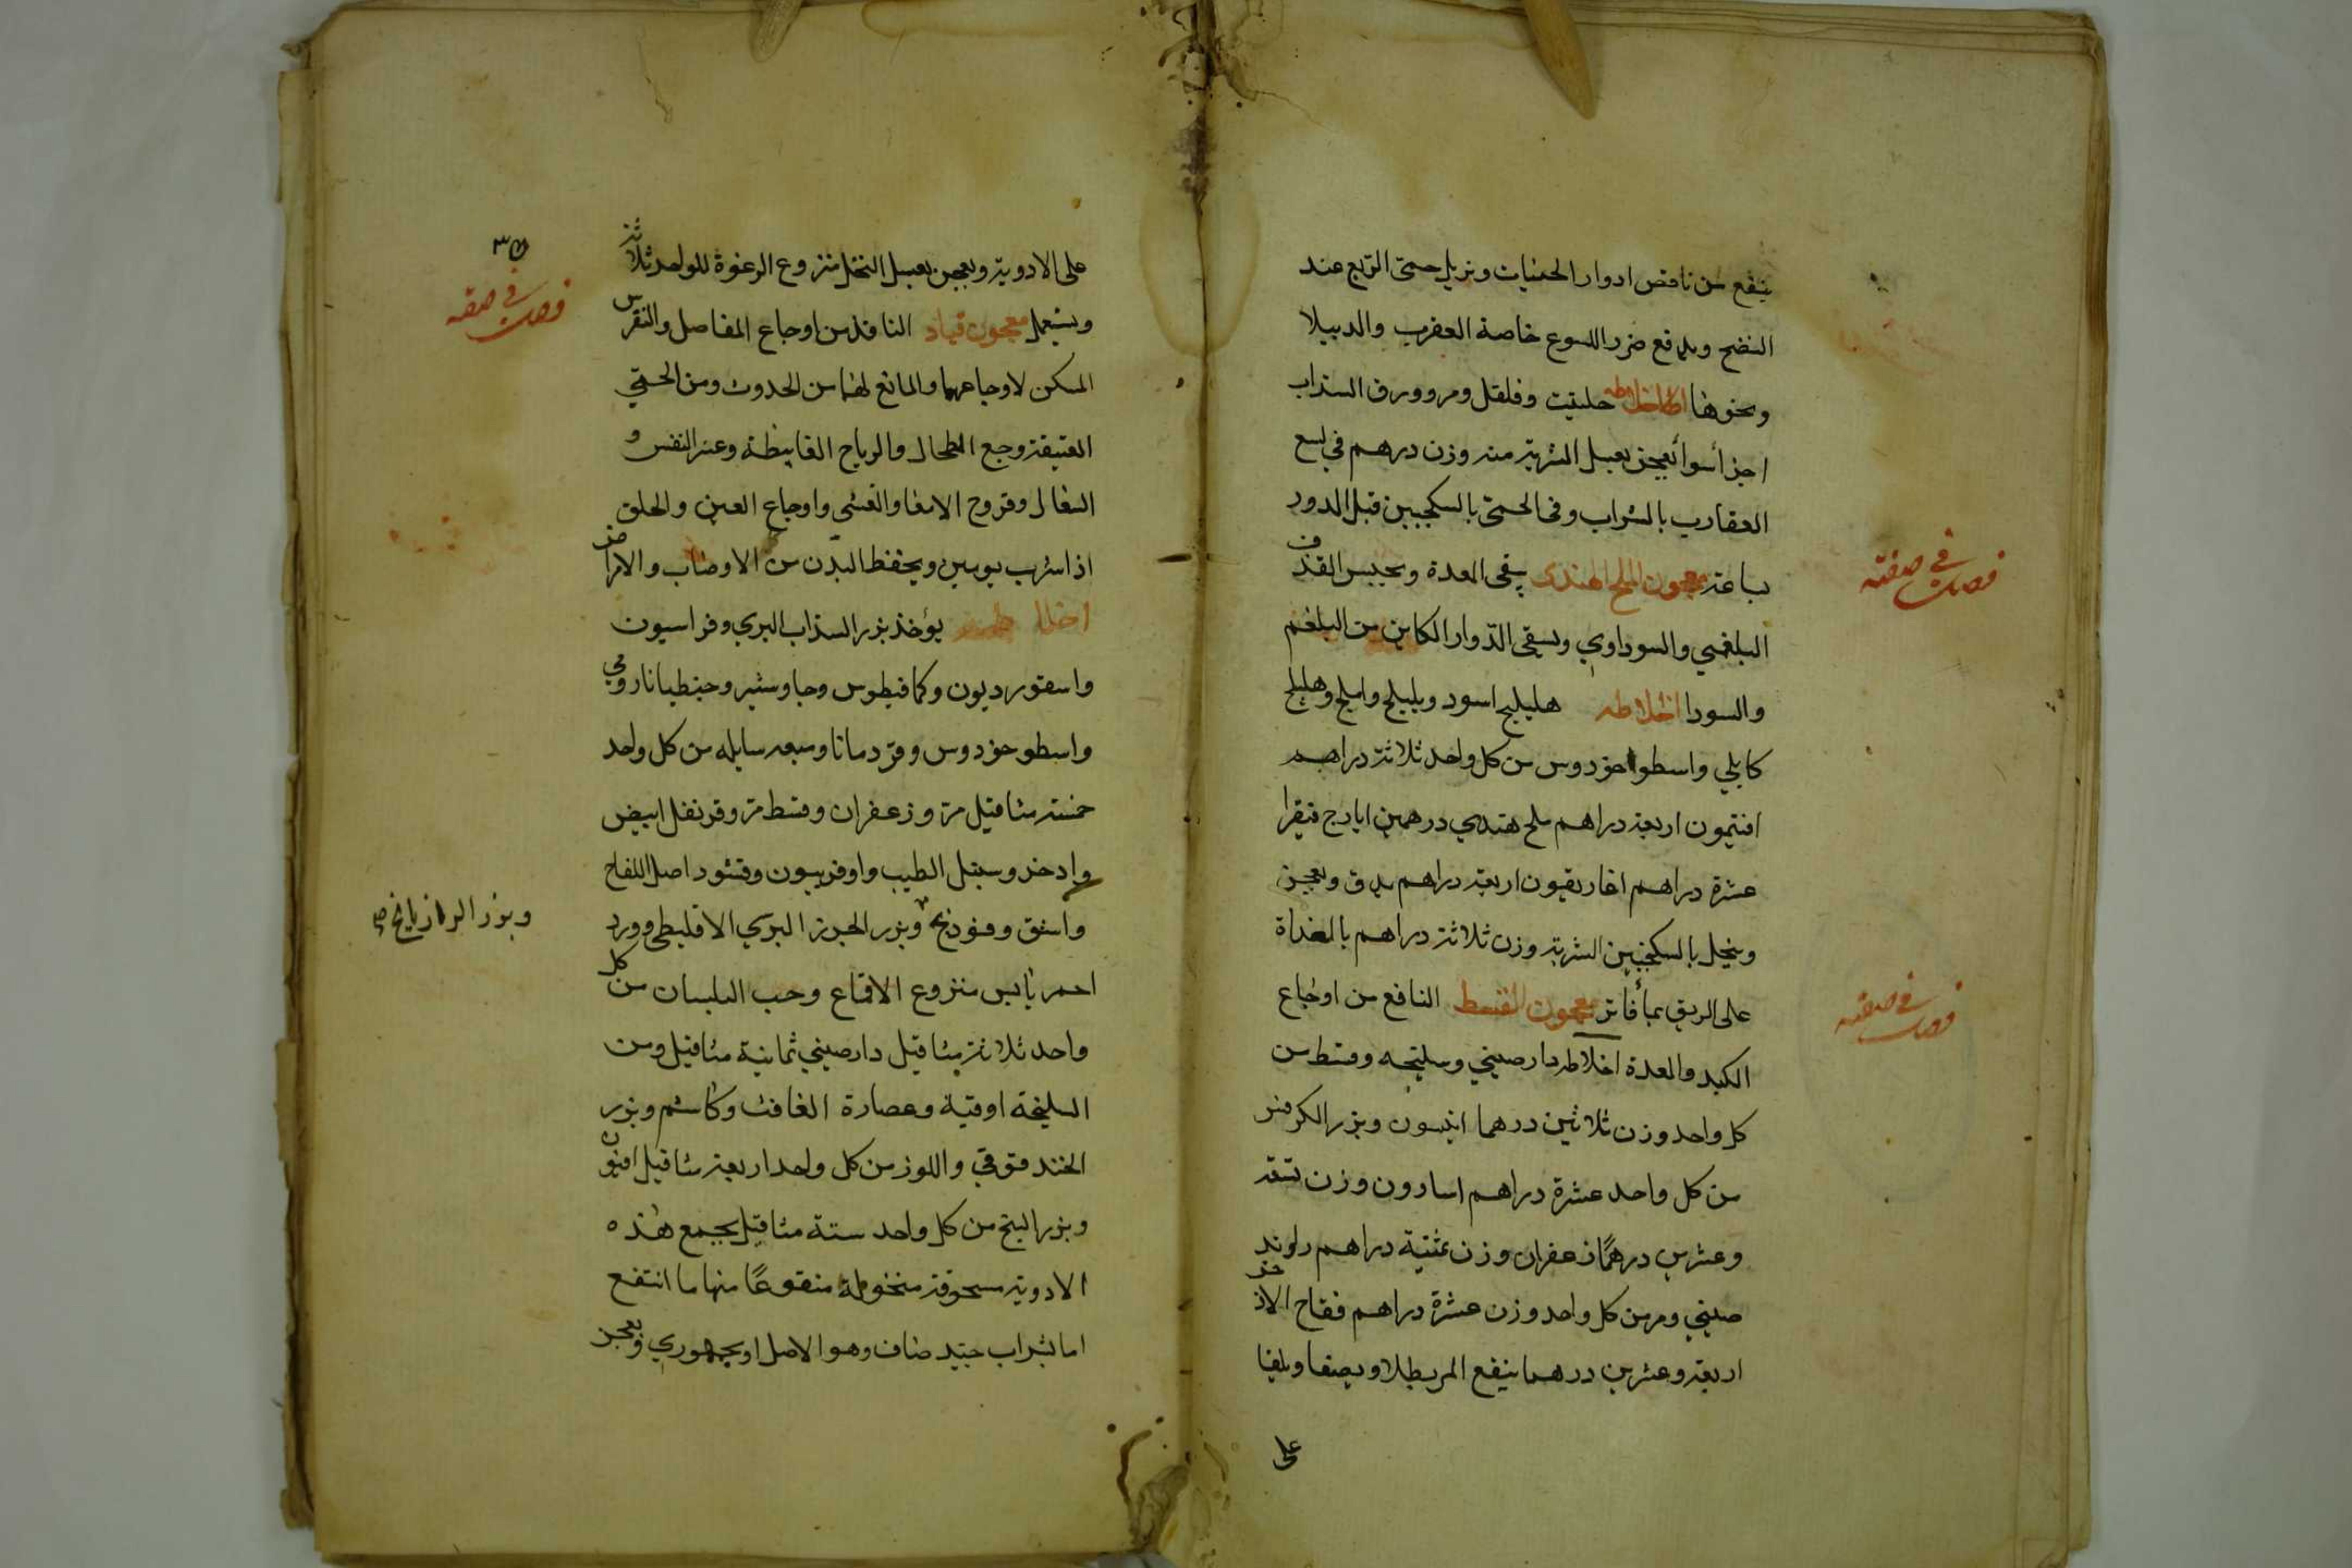 ينفع من نافض ادوار الحميات ويزيل حمى الربع عند
النضج ويدفع ضرر اللسوع خاصة العقرب والدبيلا
ونحوها اخلاطه حلتيت وفلفل ومر وورق السذاب
اجزأ سوأ يعجن بعسل الشربة منه وزن درهم في لسع
العقارب بالشراب وفي الحمى بالسكنجبين قبل الدور
فصل في صفته
بساعة معجون الملح الهندى ينقى المعدة ويحبس القذف
البلغمي والسوداوي ويسقى الدوار الكاين من البلغم
والسودا اخلاطه هليلج اسود وبليلج واملج وهليلج
كابلي واسطواخودوس من كل واحد ثلاثة دراهم
افتيمون اربعة دراهم ملح هندي درهمين ايارج فيقرا
عشرة دراهم اغاريقون اربعة دراهم يدق ويعجن
وينخل بالسكنجبين الشربة وزن ثلاثة دراهم بالغداة
فصل في صفته
على الريق بمأ فاتر معجون القسط النافع من اوجاع
الكبد والمعدة اخلاطه دارصيني وسليخه وقسط من
كل واحد وزن ثلاثين درهما انيسون وبزر الكرفس
من كل واحد عشرة دراهم اسارون وزن تسعة
وعشرين درهمًا زعفران وزن ثمنية دراهم راوند
صيني ومر من كل واحد وزن عشرة دراهم فقاح الاذخر
اربعة وعشرين درهما ينقع المر بطلا ويصفا ويلقا
على
على الادوية ويعجن بعسل النحل منزوع الرغوة للواحد ثلاثة
فصل في صفته
ويستعمل معجون قباد النافذ من اوجاع المفاصل والنقرس
المسكن لاوجاعهما والمانع لهما من الحدوث ومن الحمى
العتيقة وجع الطحال والرياح الغليظة وعسر النفس و
السعال وقروح الامعا والغشى واوجاع العين والحلق
اذا شرب يومين ويحفظ البدن من الاوصاب والامراض
اخلاطه يؤخذ بزر السذاب البري وفراسيون
واسقورديون وكمافيطوس وجاوشير وجنطيانا رومي
واسطوخودوس وقردمانا وميعه سايله من كل واحد
خمسة مثاقيل مر وزعفران وقسط مر وقرنفل ابيض
واذخر وسنبل الطيب واوفربيون وقشور اصل اللفاح
واشق وفوذنج وبزر الجزر البري الاقليطي وورد
وبزر الرازيانج صح
احمر يابس منزوع الاقماع وحب البلسان من كل
واحد ثلاثة مثاقيل دارصيني ثمانية مثاقيل ومن
السليخة اوقية وعصارة الغافث وكاشم وبزر
الحندقوقي واللوز من كل واحد اربعة مثاقيل افيون
وبزر البنج من كل واحد ستة مثاقيل يجمع هذه
الادوية مسحوقة منخولة منقوعًا منها ما انتقع
اما بشراب جيد صاف وهو الاصل او بجمهوري ويعجن